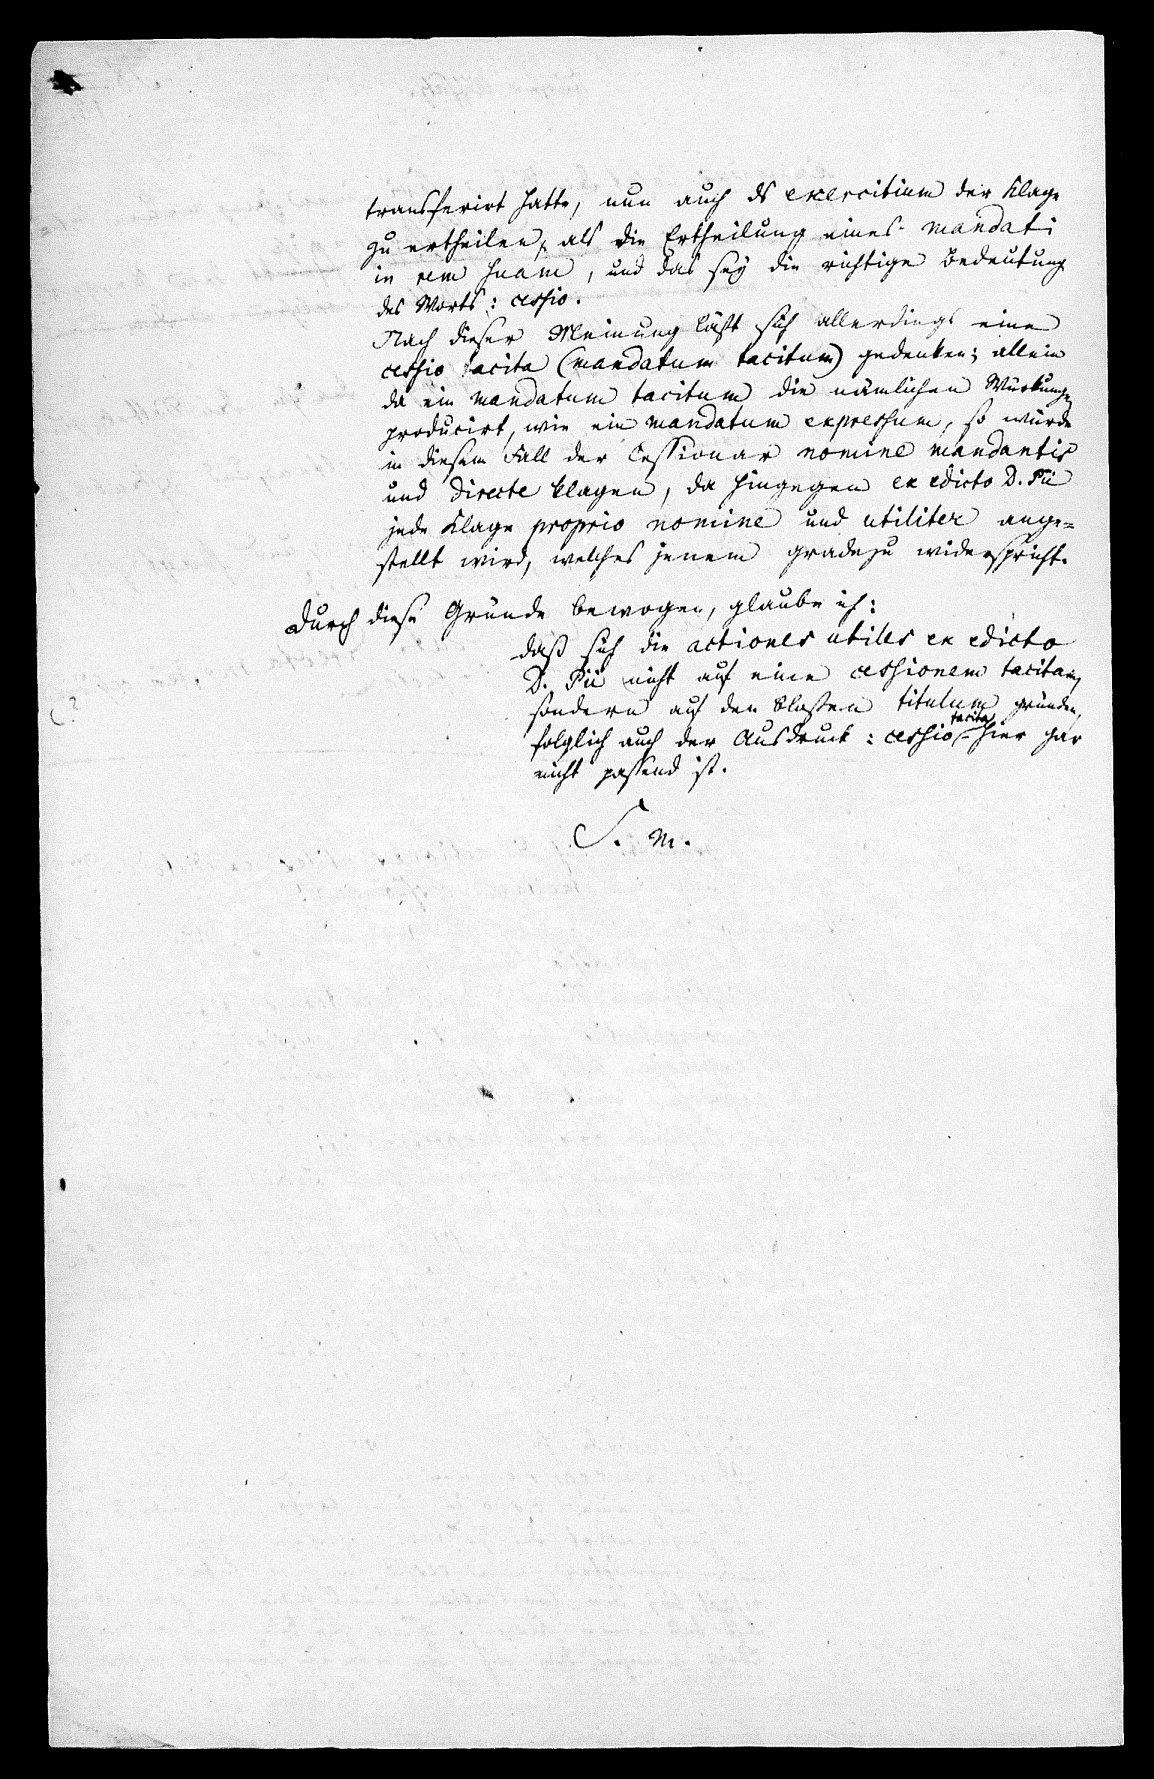 transferirt hatte, nun auch ds exercitium der Klage
zu ertheilen, als die Ertheilung eines mandati
in rem suam, und das sey die richtige Bedeutung
des Worts: cessio.
Nach dieser Meinung läßt sich allerdings eine
cessio tacita (mandatum tacitum) gedenken; allein
da ein mandatum tacitum die nämlichen Würkungen
producirt, wie ein mandatum expressum, so würde
in diesem Fall der Cessionar nomine mandantis
und directe klagen, da hingegen ex edicto D. Pii
jede Klage proprio nomine und utiliter ange=
stellt wird, welches jenem gradezu widerspricht.
Durch diese Gründe bewogen, glaube ich:
daß sich die actiones utiles ex edicto
D. Pii nicht auf eine cessionem tacitam,
sondern auf den bloßen titulum gründen,
folglich auch der Ausdruck: cessio tacita hier gar
nicht passend ist.
S. m.